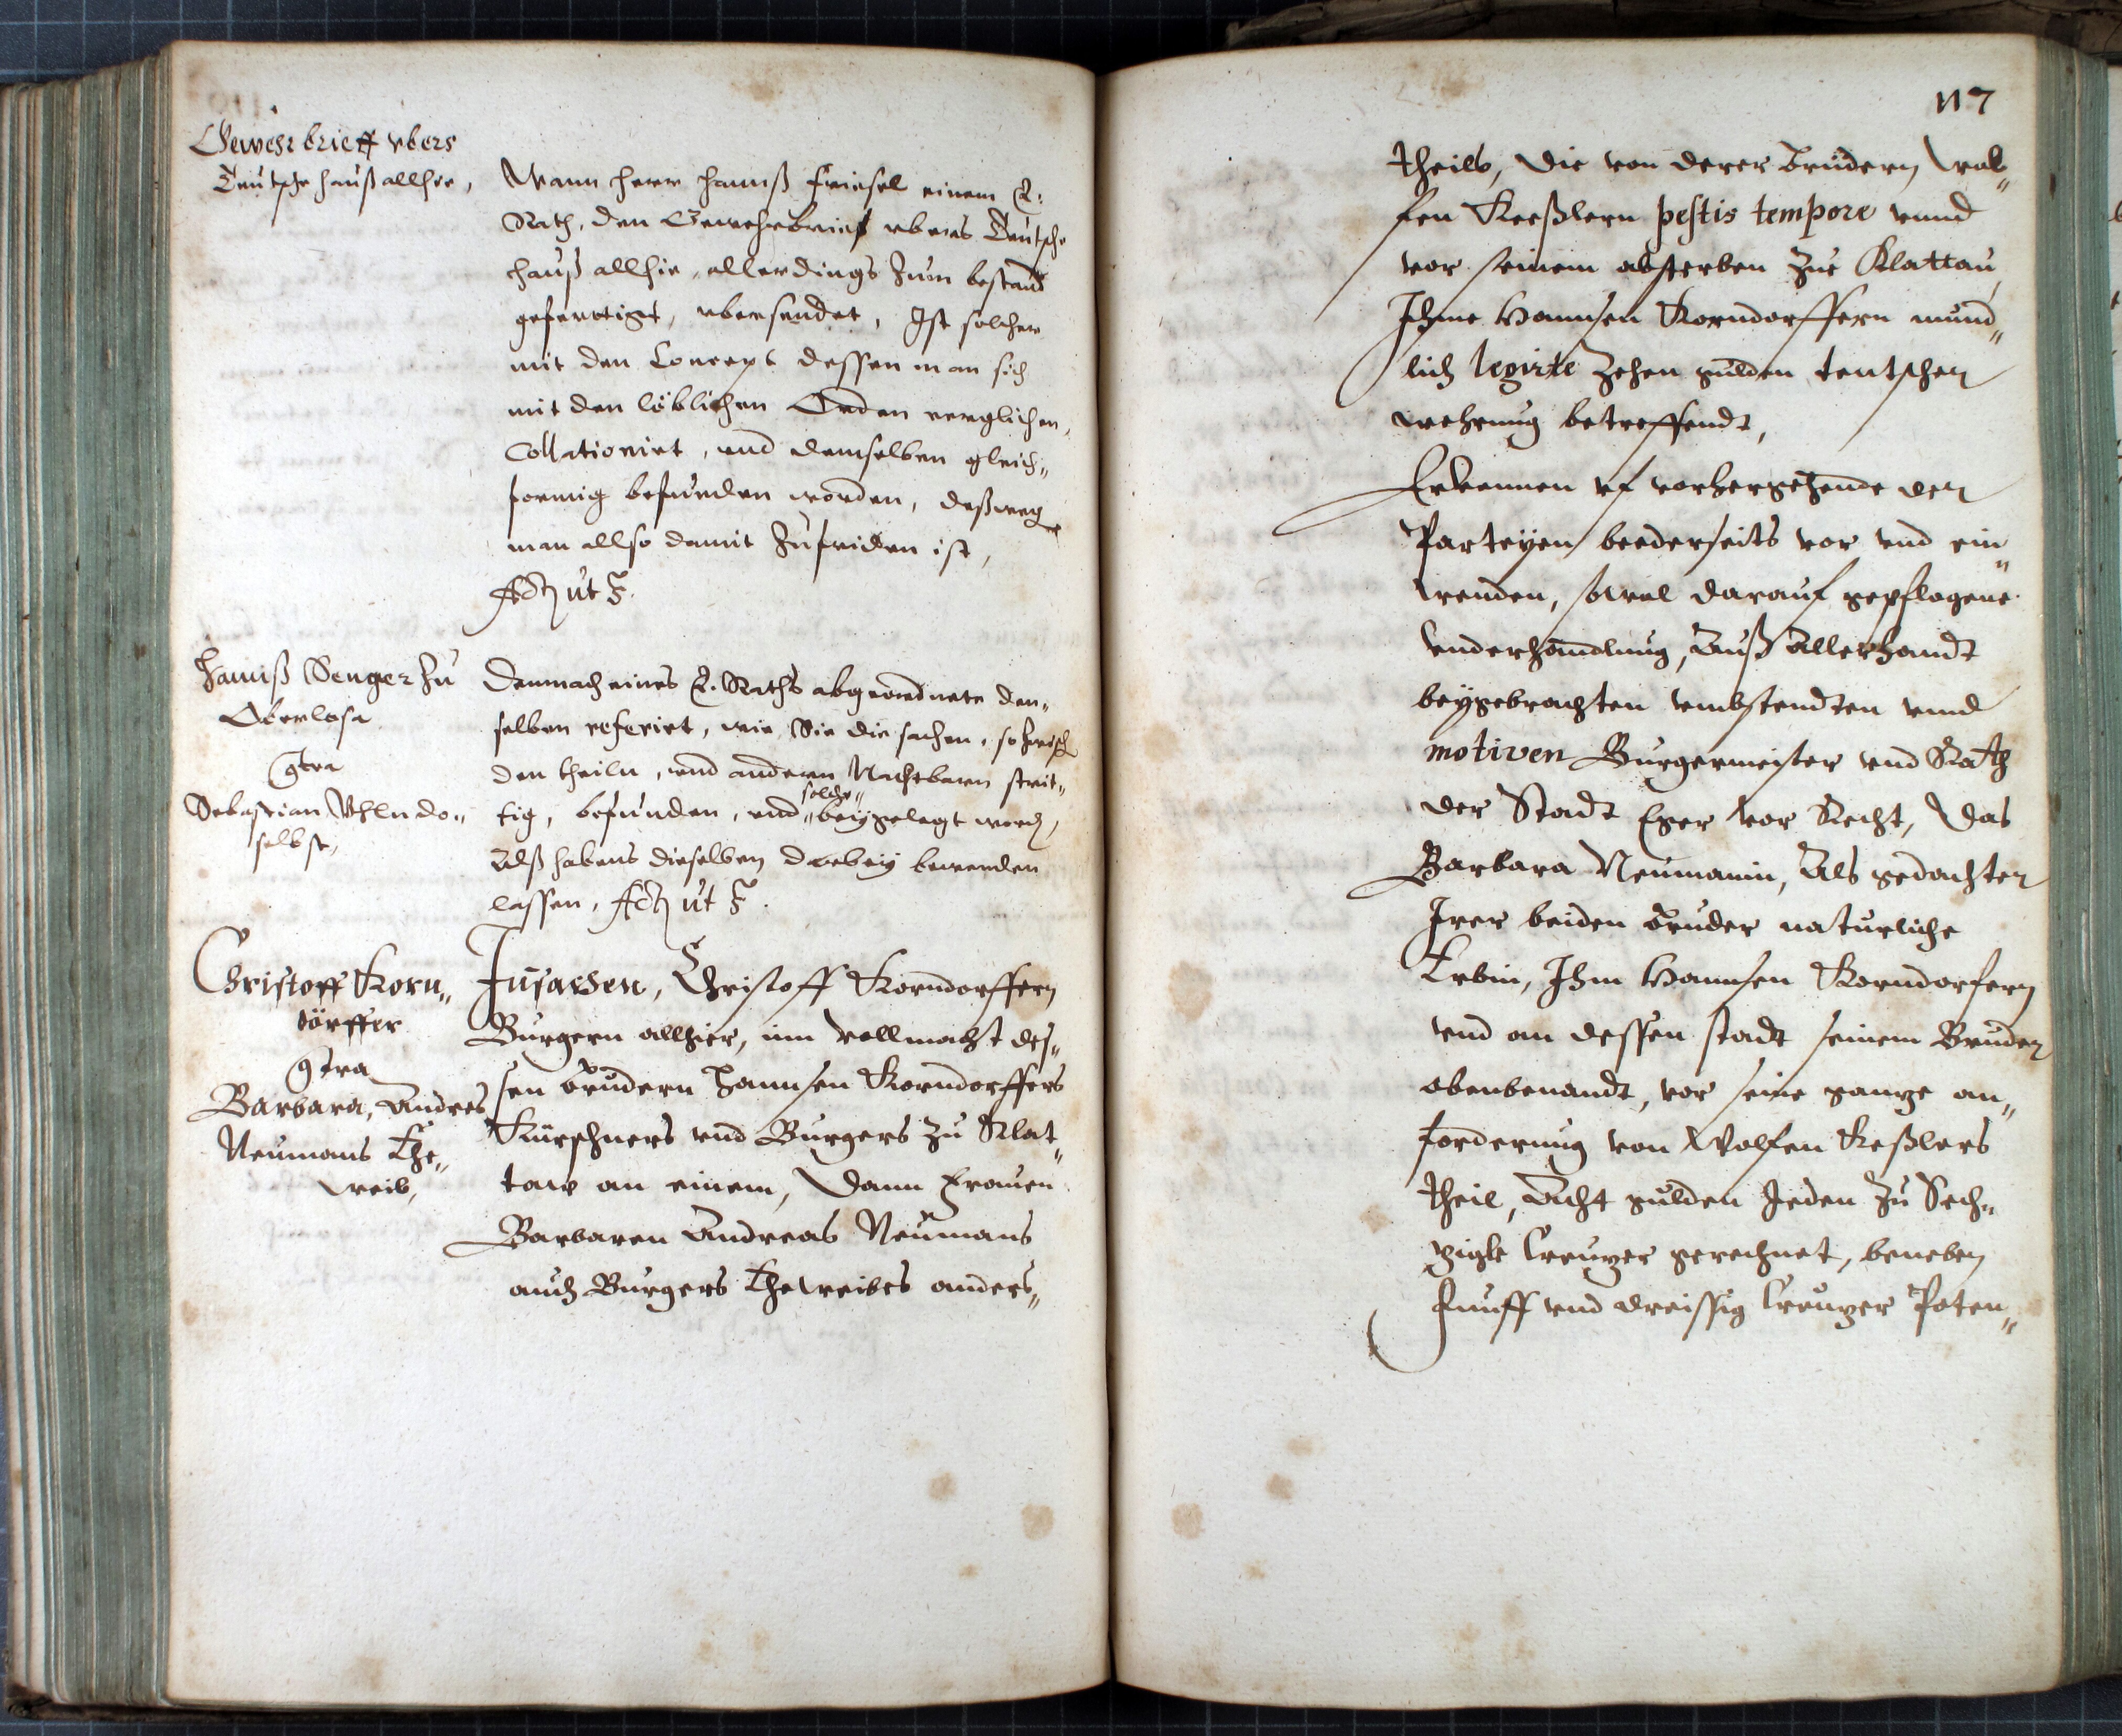 Gewehrbrieff vbers
Teutsche hauß allhie,
Wann herr Hanß Friesel einem E:
Rath, den Gewehrbrief vbers Teutsche
hauß allhie, allerdings zum bestand
gefertiget, vbersendet, Ist solcher
mit den Concept dessen man sich
mit den löblichen Orden verglichen,
Collationirt, vnd demselben gleich„
formig befunden worden, deßweg
man allso damit zufriden ist,
Act ut S.
Hanß Senger zu
Oberlosa
Contra
Sebastian Vhln do„
selbst,
Demnach eines E. Raths abgeordnete den„
selben referirt, wie Sie die sachen, so zwisch
den theiln, vnd andern Nachtbarn strit„
tig, befunden, vnd solche„ beygelegt word,
Alß habens dieselben darbey bewenden
lassen, Act ut S.
Christoff Korn„
dörffer
Contra
Barbara, Andres
Neumans Ehe„
weib,
In sachen, Christoff Korndorffern
Burgern allhier, inn vollmacht des„
sen brudern Hannsen Korndorffers
Kürschners vnd Burgers zu Klat„
taw an einem, dann Frawen
Barbaren Andreas Neumans
auch Burgers Eheweibes anders„
117
theils, die von derer brudern Wol„
fen Keeßlern pestis tempore vnnd
vor seinem absterben zue Klattau,
Ihme Hannsen Korndorffern mund„
lich legirte Zehen gulden teutscher
wehrung betreffendt,
Erkennen vf vorhergehende der
Parteyen beederseits vor vnd ein„
wenden, sowol darauf gepflogene
vnderhandlung, Auß Allerhandt
beygebrachten vmbstendten vnnd
motiven Burgermeister vnd Rath
der Stadt Eger vor Recht, das
Barbara Neumanin, Als gedachter
Irer beiden bruder naturliche
Erbin, Ihm Hannsen Korndorfern
vnd an dessen stadt seinem Bruder
obenbenandt, vor seine gantze an„
forderung von Wolfen Keßlers
theil, Acht gulden Jeden zu Sech„
zigk Creuzer gerechnet, beneben
funff vnd dreissig Creuzer Poten„